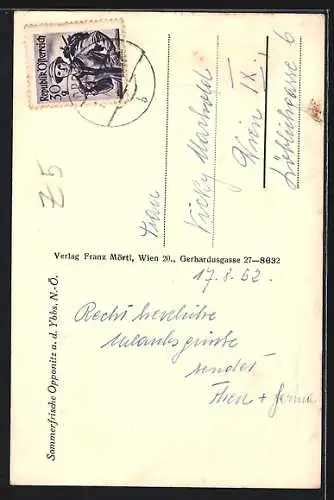 Republik Österreich
30 g
Z5
Frau
Vicky
Wien IX.
Löblichgasse 6
Verlag Franz Mörtl, Wien 20., Gerhardusgasse 27—8632
17.8.52.
Recht herzliche
Urlaubsgrüsse
sendet
+
Sommerfrische Opponitz a. d. Ybbs. N.-Ö.